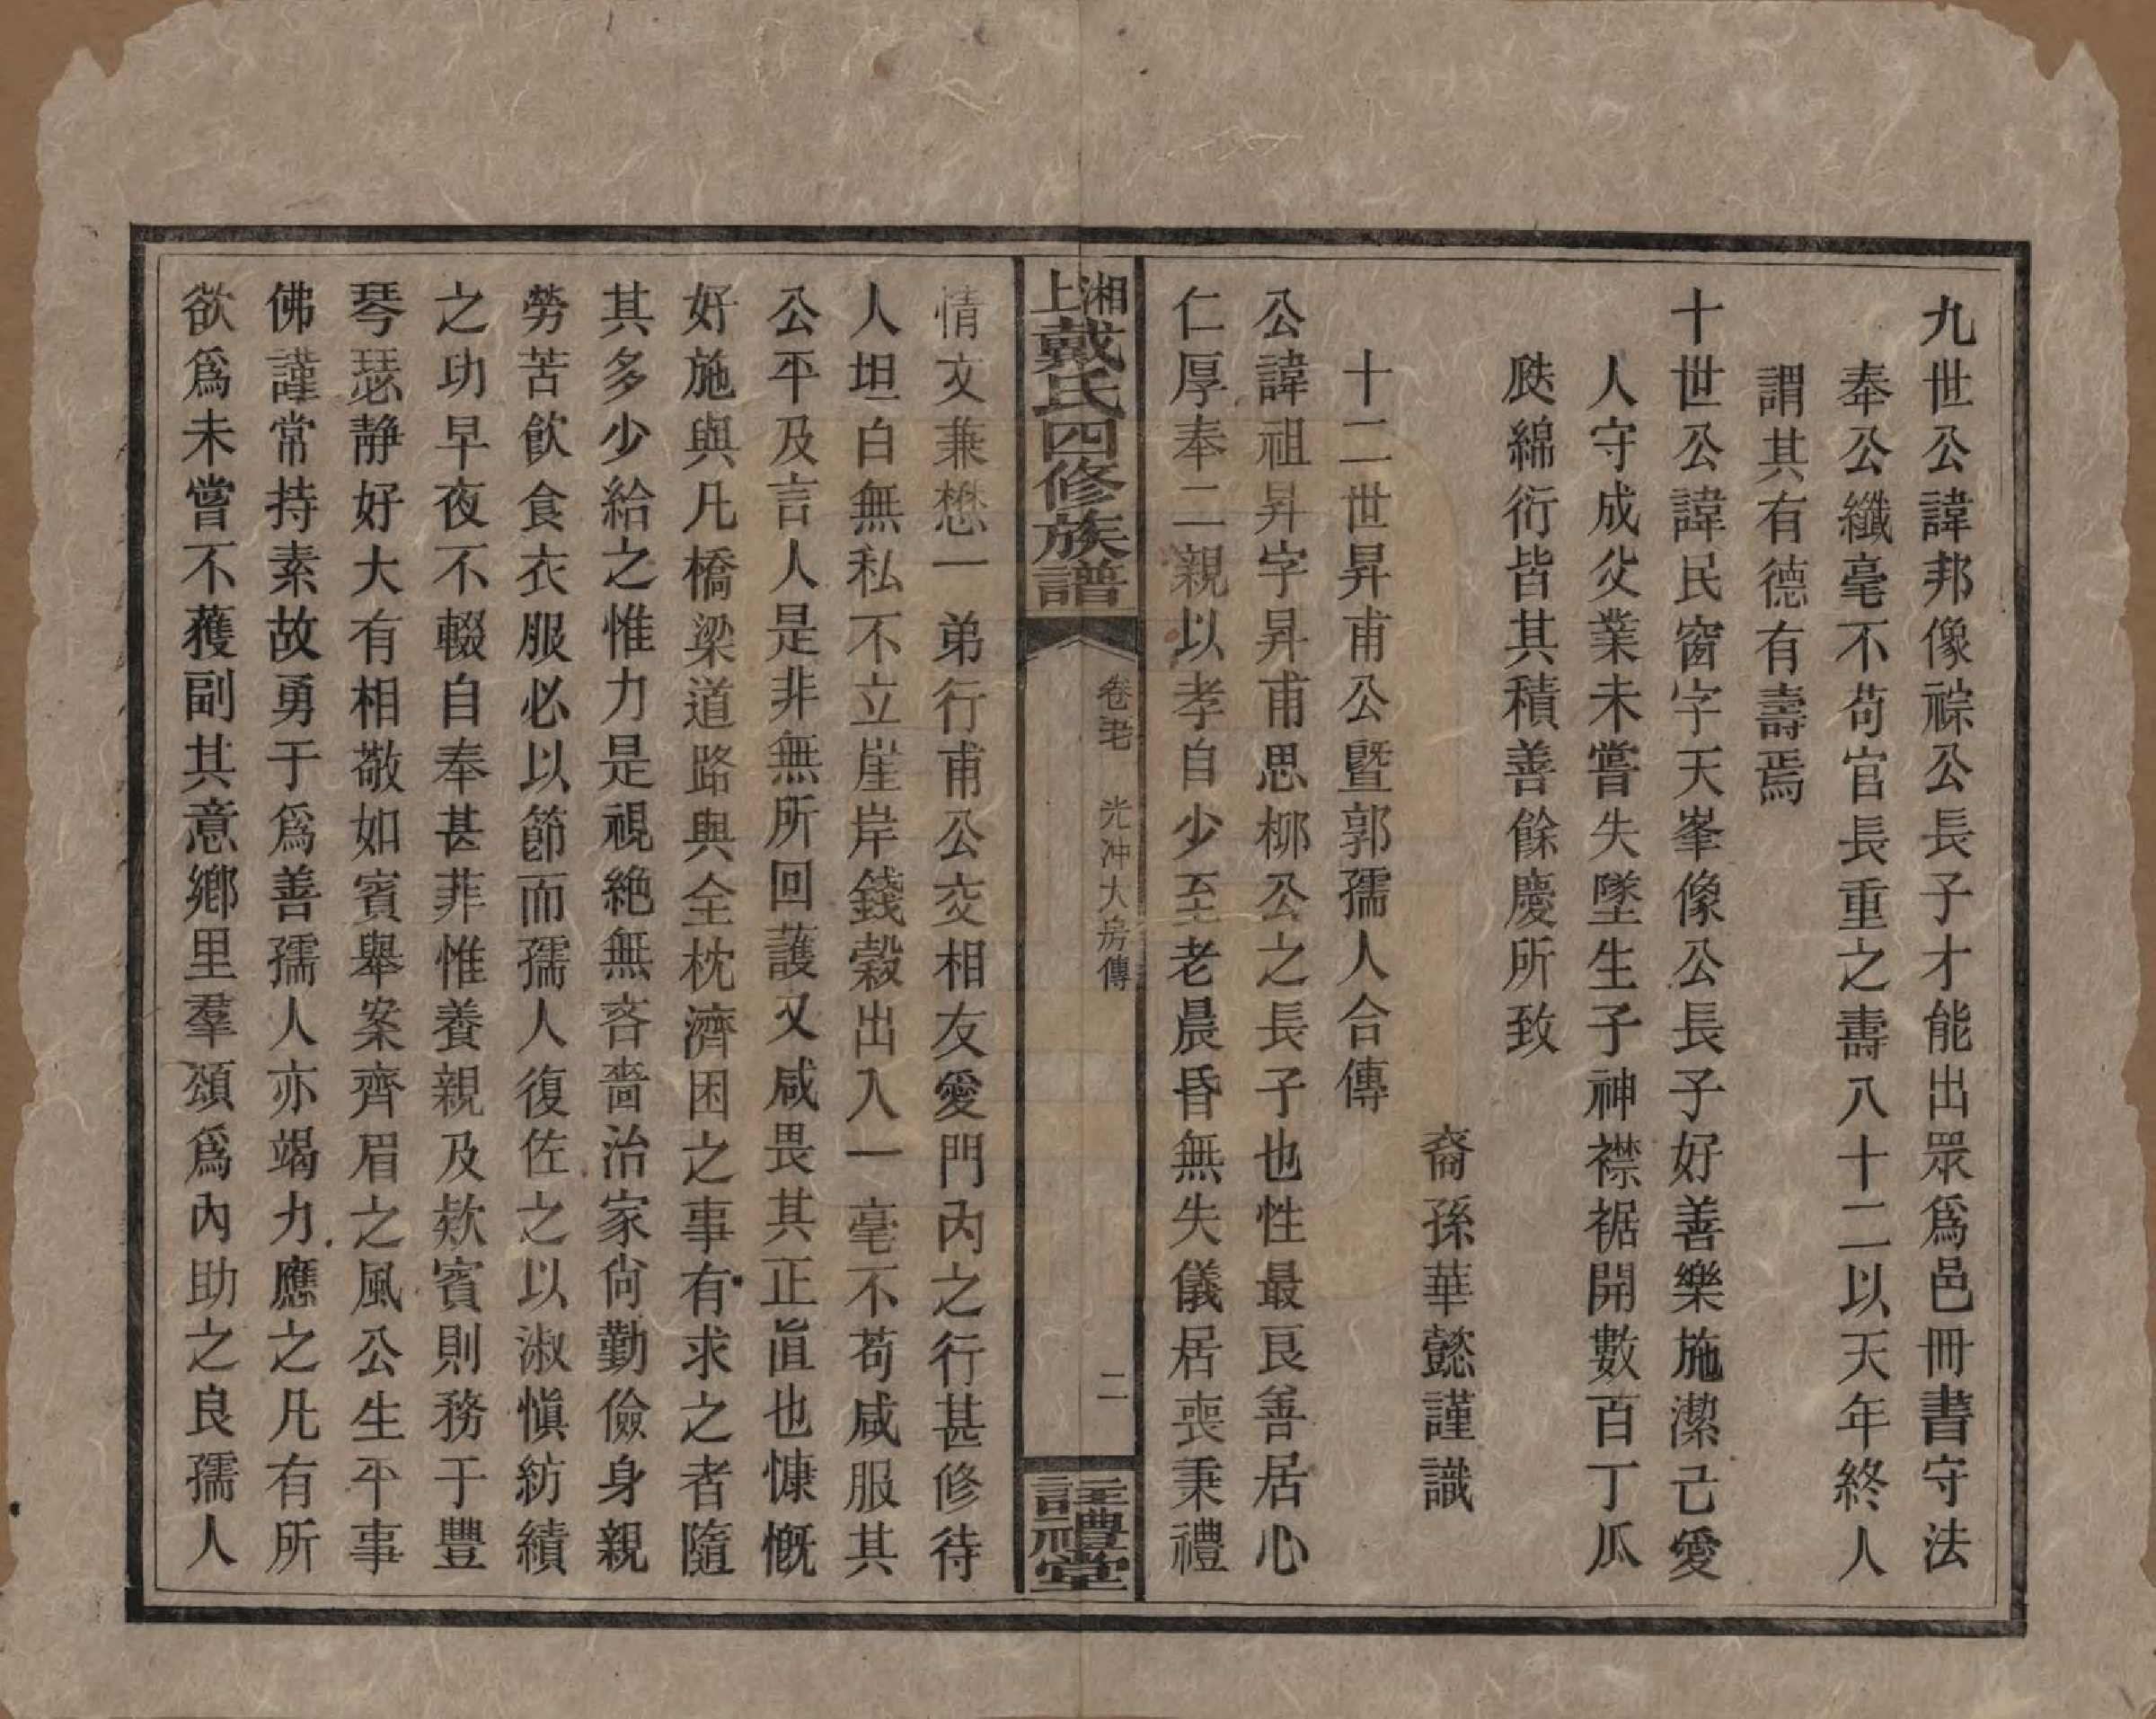 九世公諱邦像祿公長子才能出眾爲邑冊書守法
奉公纖毫不苟官長重之壽八十二以天年終人
謂其有德有壽焉
十世公諱民窗字天峯像公長子好善樂施潔己愛
人守成父業未嘗失墜生子神襟裾開數百丁瓜
瓞綿衍皆其積善餘慶所致
裔孫華懿謹識
十二世昇甫公暨郭孺人合傳
公諱祖昇字昇甫思柳公之長子也性最良善居心
仁厚奉二親以孝自少至老晨昏無失儀居喪秉禮
湘上戴氏四修族譜
卷
光冲大房傳
二
註禮堂
情文兼懋一弟行甫公交相友愛門內之行甚修待
人坦白無私不立崖岸錢穀出入一毫不苟咸服其
公平及言人是非無所回護又咸畏其正直也慷慨
好施與凡橋梁道路與全枕濟困之事有求之者隨
其多少給之惟力是視絕無吝嗇治家尙勤儉身親
勞苦飲食衣服必以節而孺人復佐之以淑愼紡績
之功早夜不輟自奉甚菲惟養親及欵賓則務于豐
琴瑟静好大有相敬如賓舉案齊眉之風公生平事
佛謹常持素故勇于爲善孺人亦竭力應之凡有所
欲爲未嘗不獲副其意鄉里羣頌爲內助之良孺人